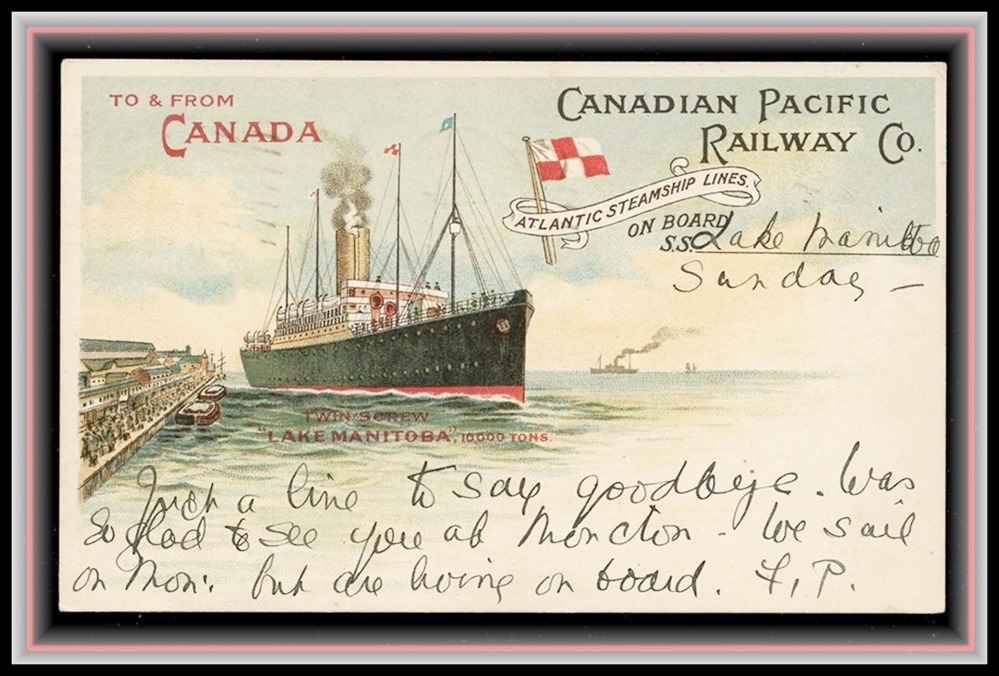 TO & FROM
CANADA
CANADIAN PACIFIC
RAILWAY CO.
ATLANTIC STEAMSHIP LINES.
ON BOARD
S.S. Lake Manitoba
Sunday –
TWIN SCREW
"LAKE MANITOBA", 10000 TONS.
Just a line to say goodbye. Was
so glad to see you at Moncton - We sail
on Mon: but are living on board. F.P.